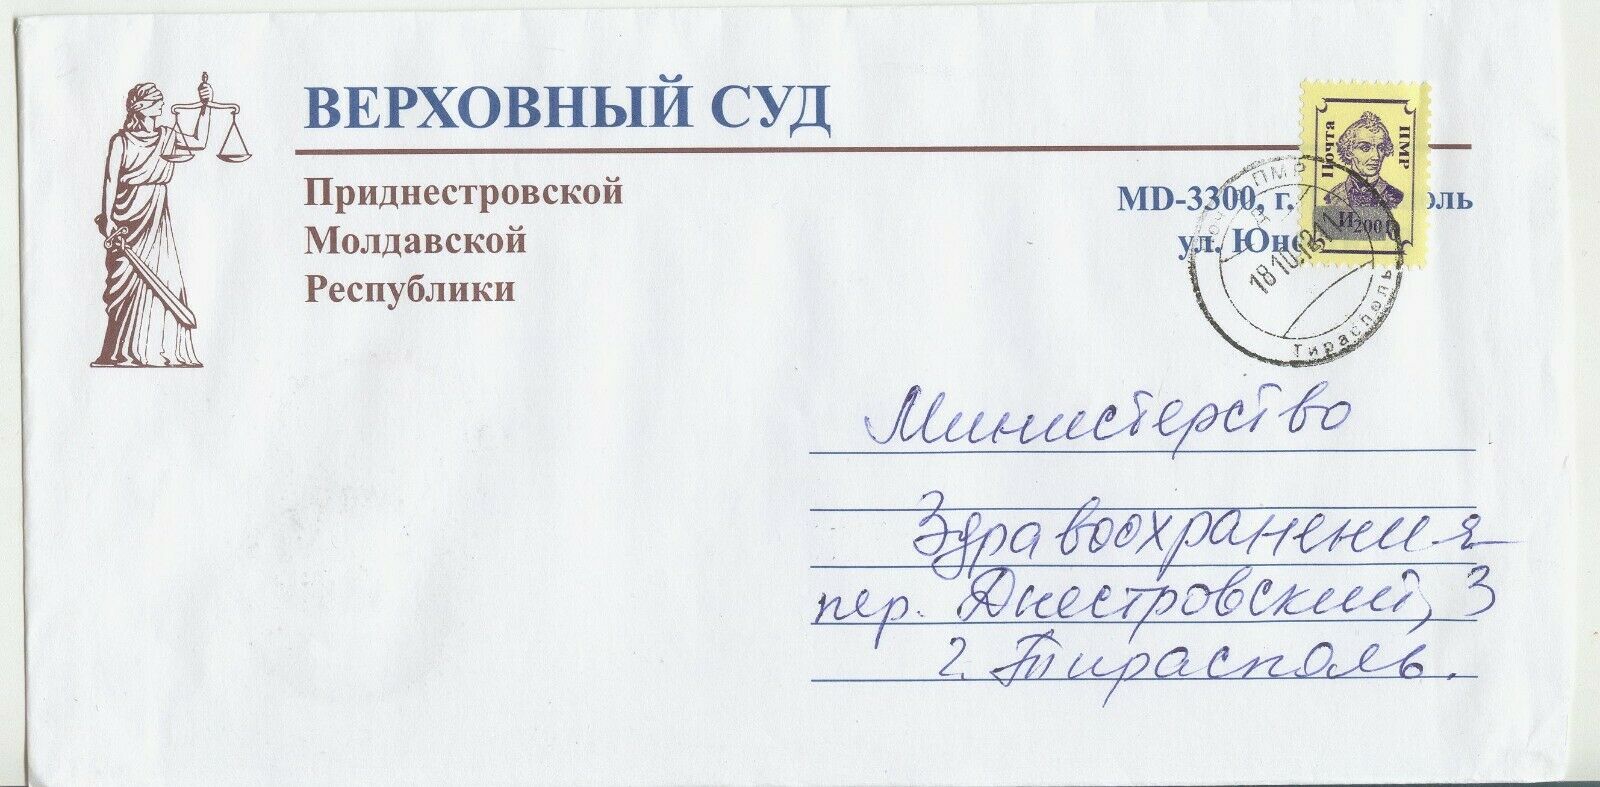 ВЕРХОВНЫЙ СУД
Приднестровской
Молдавской
Республики
MD-3300, г.
ул.
Почта ПМР
И2001
ПМР
18 10 12
Тирасполь
Министерство
Здравоохранения
пер. Днестровский, 3
г. Тирасполь.